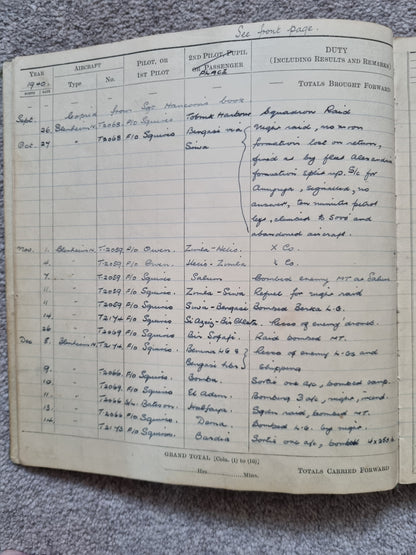 See front page.
YEAR AIRCRAFT PILOT, OR 1ST PILOT 2ND PILOT, PUPIL OR PASSENGER DUTY (INCLUDING RESULTS AND REMARKS)
1940. Type No. PLACE
MONTH DATE
— — — — — TOTALS BROUGHT FORWARD
Copied from Sgt Hancocks book
Sept. 26 Blenheim IV. T2068 F/O Squires Tobruk Harbour Squadron Raid
Oct. 27 " T2068 F/O Squires Bengasi via Night raid, no moon
Siwa formation lost on return,
fired at by fleet Alexandria
formation split up. S/c for
, signalled, no
answer, ten minutes petrol
left, climbed to 5000 and
abandoned aircraft.
Nov. 1. Blenheim IV T.2059 F/O Owen. Zimla-Helio. X Co.
4. " T.2059 F/O Owen. Helio-Zimla X Co.
7 " T.2059 F/O Squires. Salum Bombed enemy MT at Salum
11 " T.2059 F/O Squires. Zimla-Siwa. Refuel for night raid
11 " T.2059 F/O Squires Siwa-Bengasi Bombed Berka L.G.
14 " T2174 F/O Squires. Recco of enemy
26 " T2069 F/O Squires Bir Sofafi. Raid bombed MT.
Dec 8. Blenheim IV. T.2174 F/O Squires. Benina LGs Recco of enemy LGs and
Bengasi hbr. shipping
9. " T2066 F/O Squires. Bomba. Sortie one a/c, bombed
10. " T2069. F/O Squires. El Adem. Bombing 3 a/c, night,
11. " T2066 Bateson. Halfaya. Sqdn raid, bombed MT.
13. " T2066 F/O Squires. Derna. Bombed L.G. by night.
14. " T2173 F/O Squires. Bardia Sortie one a/c, bombed 4 x 250 lb
GRAND TOTAL [Cols. (1) to (10)].
Hrs. Mins. TOTALS CARRIED FORWARD